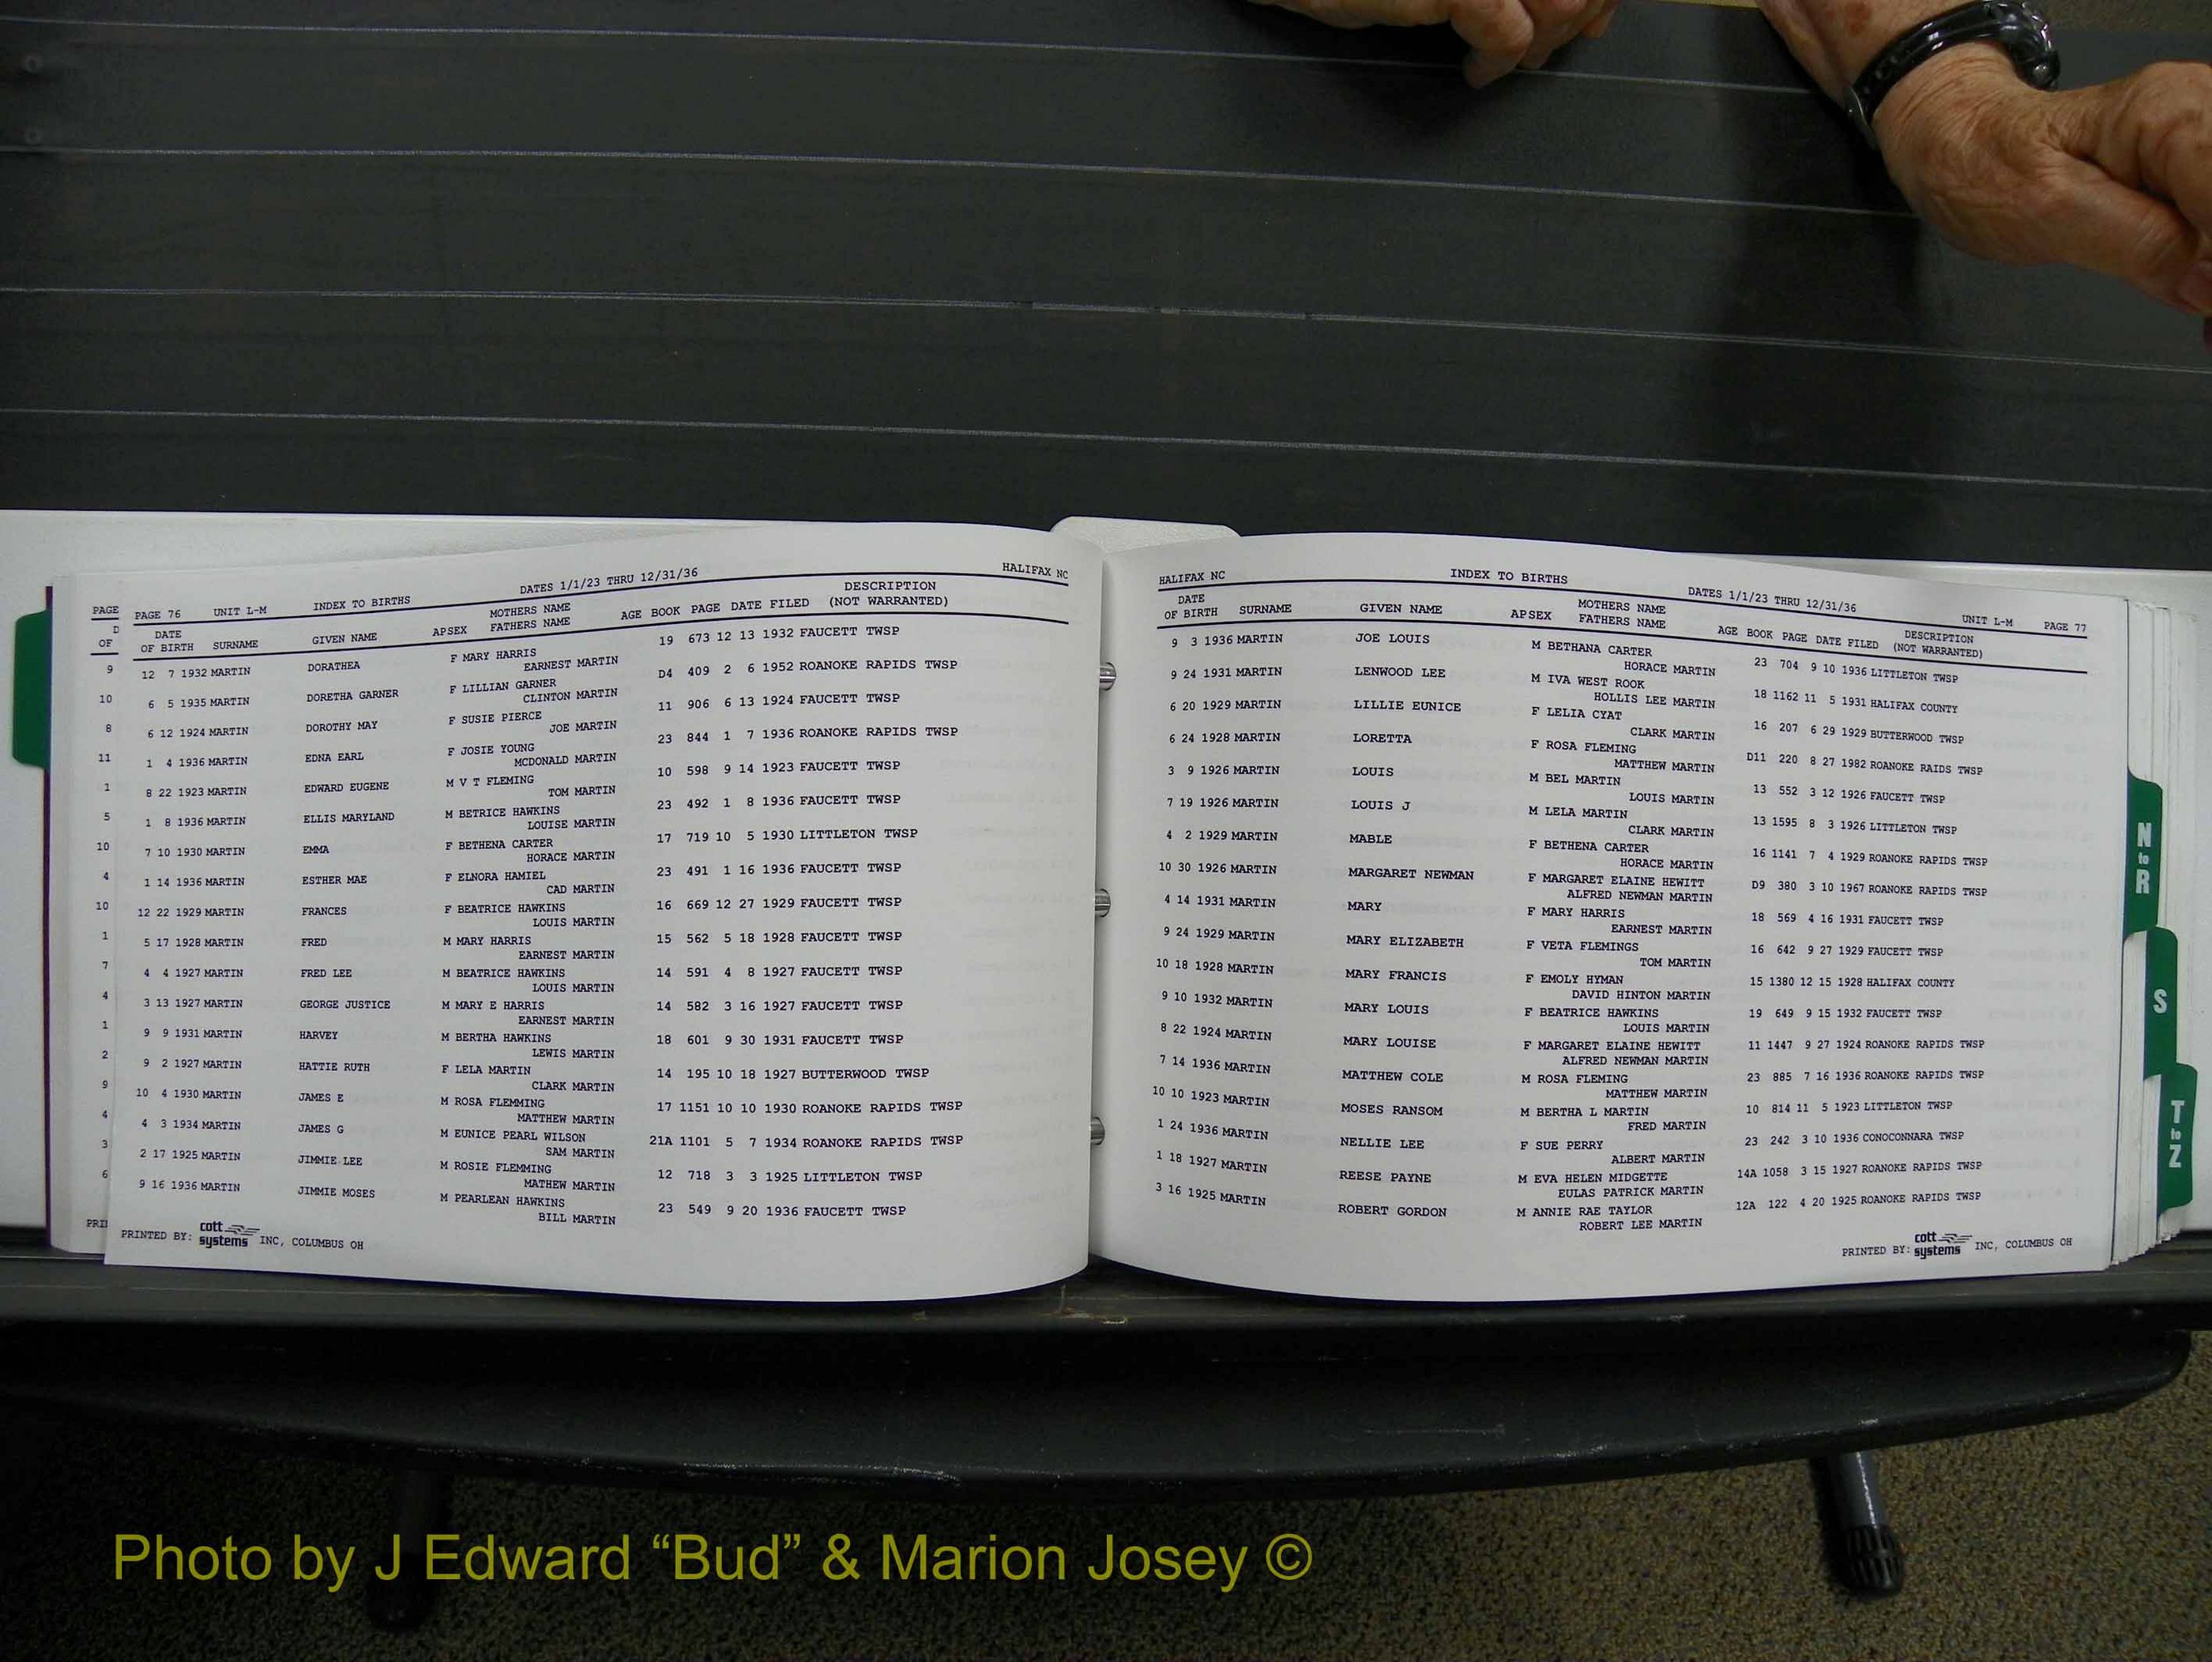 PAGE
D
OF
9
10
8
11
1
5
10
4
10
1
7
4
1
2
9
4
3
6
PRI
PAGE 76 UNIT L-M INDEX TO BIRTHS DATES 1/1/23 THRU 12/31/36 HALIFAX NC
DATE MOTHERS NAME DESCRIPTION
OF BIRTH SURNAME GIVEN NAME AP SEX FATHERS NAME AGE BOOK PAGE DATE FILED (NOT WARRANTED)
12 7 1932 MARTIN DORATHEA F MARY HARRIS 19 673 12 13 1932 FAUCETT TWSP
EARNEST MARTIN
6 5 1935 MARTIN DORETHA GARNER F LILLIAN GARNER D4 409 2 6 1952 ROANOKE RAPIDS TWSP
CLINTON MARTIN
6 12 1924 MARTIN DOROTHY MAY F SUSIE PIERCE 11 906 6 13 1924 FAUCETT TWSP
JOE MARTIN
1 4 1936 MARTIN EDNA EARL F JOSIE YOUNG 23 844 1 7 1936 ROANOKE RAPIDS TWSP
MCDONALD MARTIN
8 22 1923 MARTIN EDWARD EUGENE M V T FLEMING 10 598 9 14 1923 FAUCETT TWSP
TOM MARTIN
1 8 1936 MARTIN ELLIS MARYLAND M BETRICE HAWKINS 23 492 1 8 1936 FAUCETT TWSP
LOUISE MARTIN
7 10 1930 MARTIN EMMA F BETHENA CARTER 17 719 10 5 1930 LITTLETON TWSP
HORACE MARTIN
1 14 1936 MARTIN ESTHER MAE F ELNORA HAMIEL 23 491 1 16 1936 FAUCETT TWSP
CAD MARTIN
12 22 1929 MARTIN FRANCES F BEATRICE HAWKINS 16 669 12 27 1929 FAUCETT TWSP
LOUIS MARTIN
5 17 1928 MARTIN FRED M MARY HARRIS 15 562 5 18 1928 FAUCETT TWSP
EARNEST MARTIN
4 4 1927 MARTIN FRED LEE M BEATRICE HAWKINS 14 591 4 8 1927 FAUCETT TWSP
LOUIS MARTIN
3 13 1927 MARTIN GEORGE JUSTICE M MARY E HARRIS 14 582 3 16 1927 FAUCETT TWSP
EARNEST MARTIN
9 9 1931 MARTIN HARVEY M BERTHA HAWKINS 18 601 9 30 1931 FAUCETT TWSP
LEWIS MARTIN
9 2 1927 MARTIN HATTIE RUTH F LELA MARTIN 14 195 10 18 1927 BUTTERWOOD TWSP
CLARK MARTIN
10 4 1930 MARTIN JAMES E M ROSA FLEMMING 17 1151 10 10 1930 ROANOKE RAPIDS TWSP
MATTHEW MARTIN
4 3 1934 MARTIN JAMES G M EUNICE PEARL WILSON 21A 1101 5 7 1934 ROANOKE RAPIDS TWSP
SAM MARTIN
2 17 1925 MARTIN JIMMIE LEE M ROSIE FLEMMING 12 718 3 3 1925 LITTLETON TWSP
MATHEW MARTIN
9 16 1936 MARTIN JIMMIE MOSES M PEARLEAN HAWKINS 23 549 9 20 1936 FAUCETT TWSP
BILL MARTIN
PRINTED BY: cott systems INC, COLUMBUS OH
HALIFAX NC INDEX TO BIRTHS DATES 1/1/23 THRU 12/31/36 UNIT L-M PAGE 77
DATE MOTHERS NAME DESCRIPTION
OF BIRTH SURNAME GIVEN NAME AP SEX FATHERS NAME AGE BOOK PAGE DATE FILED (NOT WARRANTED)
9 3 1936 MARTIN JOE LOUIS M BETHANA CARTER 23 704 9 10 1936 LITTLETON TWSP
HORACE MARTIN
9 24 1931 MARTIN LENWOOD LEE M IVA WEST ROOK 18 1162 11 5 1931 HALIFAX COUNTY
HOLLIS LEE MARTIN
6 20 1929 MARTIN LILLIE EUNICE F LELIA CYAT 16 207 6 29 1929 BUTTERWOOD TWSP
CLARK MARTIN
6 24 1928 MARTIN LORETTA F ROSA FLEMING D11 220 8 27 1982 ROANOKE RAIDS TWSP
MATTHEW MARTIN
3 9 1926 MARTIN LOUIS M BEL MARTIN 13 552 3 12 1926 FAUCETT TWSP
LOUIS MARTIN
7 19 1926 MARTIN LOUIS J M LELA MARTIN 13 1595 8 3 1926 LITTLETON TWSP
CLARK MARTIN
4 2 1929 MARTIN MABLE F BETHENA CARTER 16 1141 7 4 1929 ROANOKE RAPIDS TWSP
HORACE MARTIN
10 30 1926 MARTIN MARGARET NEWMAN F MARGARET ELAINE HEWITT D9 380 3 10 1967 ROANOKE RAPIDS TWSP
ALFRED NEWMAN MARTIN
4 14 1931 MARTIN MARY F MARY HARRIS 18 569 4 16 1931 FAUCETT TWSP
EARNEST MARTIN
9 24 1929 MARTIN MARY ELIZABETH F VETA FLEMINGS 16 642 9 27 1929 FAUCETT TWSP
TOM MARTIN
10 18 1928 MARTIN MARY FRANCIS F EMOLY HYMAN 15 1380 12 15 1928 HALIFAX COUNTY
DAVID HINTON MARTIN
9 10 1932 MARTIN MARY LOUIS F BEATRICE HAWKINS 19 649 9 15 1932 FAUCETT TWSP
LOUIS MARTIN
8 22 1924 MARTIN MARY LOUISE F MARGARET ELAINE HEWITT 11 1447 9 27 1924 ROANOKE RAPIDS TWSP
ALFRED NEWMAN MARTIN
7 14 1936 MARTIN MATTHEW COLE M ROSA FLEMING 23 885 7 16 1936 ROANOKE RAPIDS TWSP
MATTHEW MARTIN
10 10 1923 MARTIN MOSES RANSOM M BERTHA L MARTIN 10 814 11 5 1923 LITTLETON TWSP
FRED MARTIN
1 24 1936 MARTIN NELLIE LEE F SUE PERRY 23 242 3 10 1936 CONOCONNARA TWSP
ALBERT MARTIN
1 18 1927 MARTIN REESE PAYNE M EVA HELEN MIDGETTE 14A 1058 3 15 1927 ROANOKE RAPIDS TWSP
EULAS PATRICK MARTIN
3 16 1925 MARTIN ROBERT GORDON M ANNIE RAE TAYLOR 12A 122 4 20 1925 ROANOKE RAPIDS TWSP
ROBERT LEE MARTIN
PRINTED BY: cott systems INC, COLUMBUS OH
N to R
S
T to Z
Photo by J Edward “Bud” & Marion Josey ©